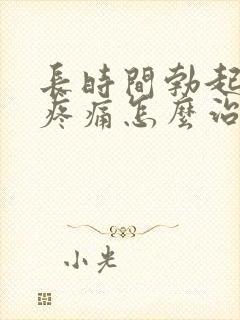 長時間勃起
疼痛怎麼治
小光